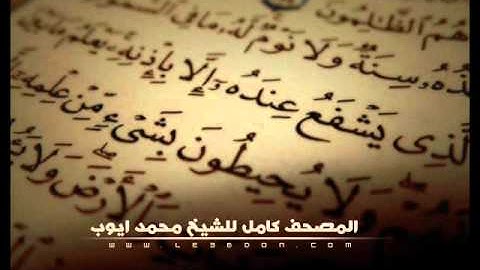 هُمُ ٱلظَّـٰلِمُونَ
سِنَةٌ وَلَا نَوْمٌ لَّهُۥ مَا فِى ٱلسَّمَـٰوَ
ٱلَّذِى يَشْفَعُ عِندَهُۥٓ إِلَّا بِإِذْنِهِۦ يَعْلَمُ مَا بَيْنَ
وَلَا يُحِيطُونَ بِشَىْءٍ مِّنْ عِلْمِهِۦٓ إِلَّا
وَٱلْأَرْضَ وَلَا
المصحف كامل للشيخ محمد ايوب
www.le3boon.com